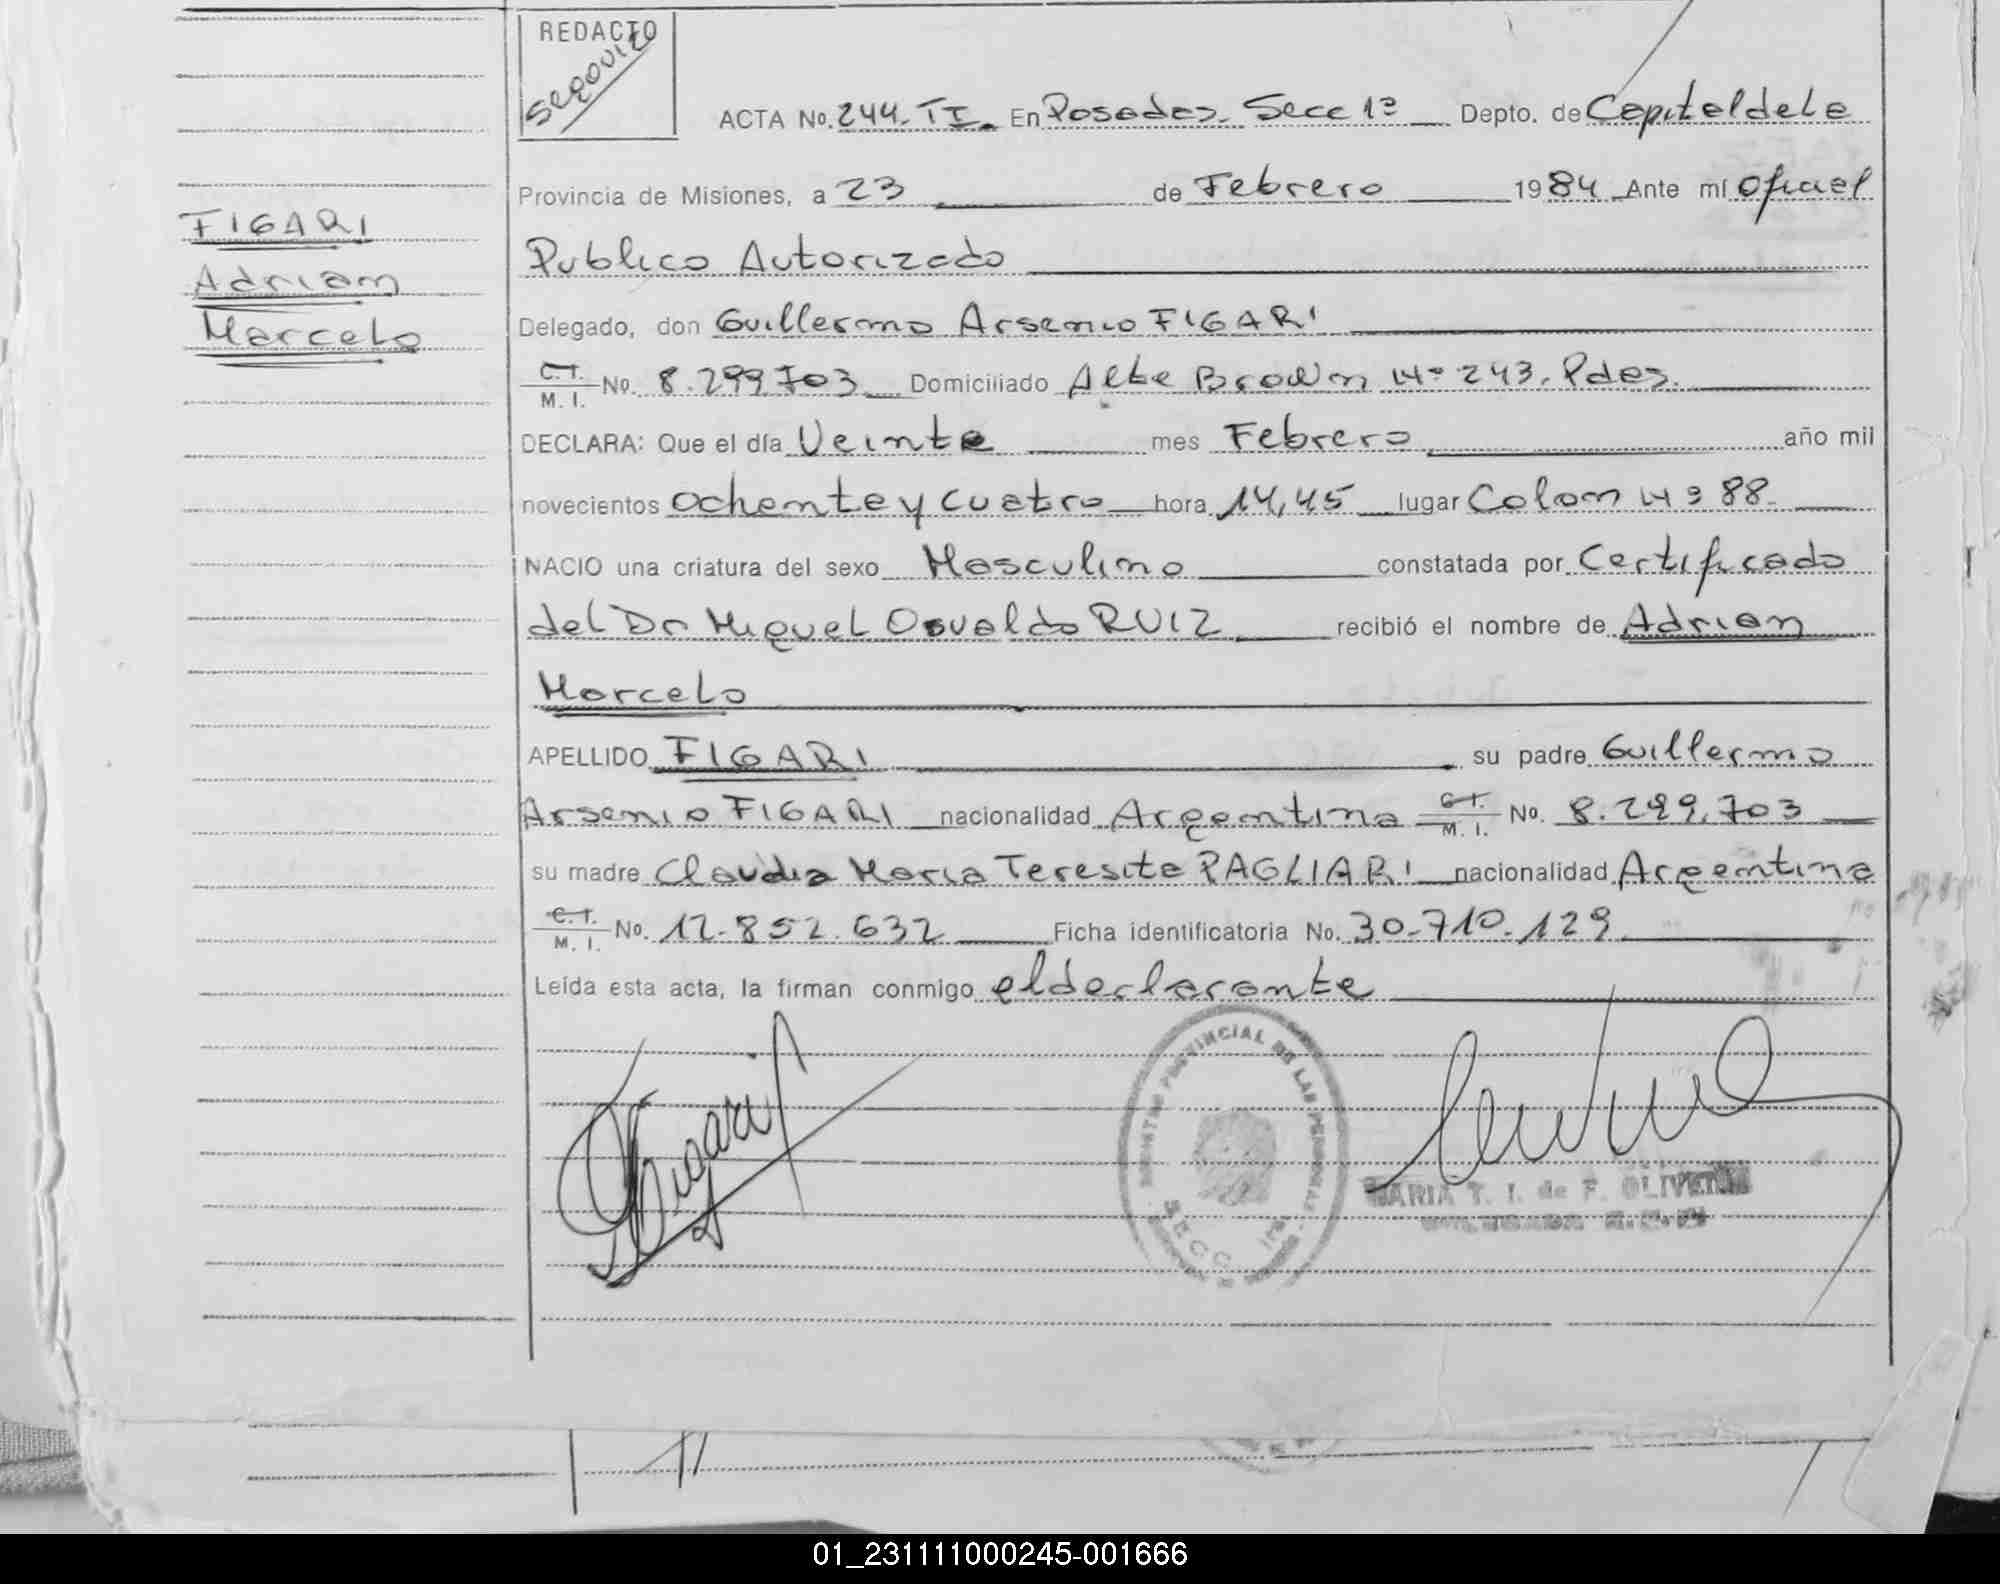 REDACTO
Segovito
ACTA No. 244. TI. En Posadas. Secc 1ª Depto. de Capital de la
Provincia de Misiones, a 23 de Febrero 1984 Ante mí Oficial
Publico Autorizado
FIGARI
Adrian
Marcelo
Delegado, don Guillermo Arsenio FIGARI
C.I. M. I. No. 8.299.703 Domiciliado Alte Brown Nº 243. Pdas.
DECLARA: Que el día Veinte mes Febrero año mil
novecientos ochenta y cuatro hora 14,45 lugar Colon Nº 88
NACIO una criatura del sexo Masculino constatada por Certificado
del Dr Miguel Osvaldo RUIZ recibió el nombre de Adrian
Marcelo
APELLIDO FIGARI su padre Guillermo
Arsenio FIGARI nacionalidad Argentina C.I. M. I. No. 8.299.703
su madre Claudia Maria Teresita PAGLIARI nacionalidad Argentina
C.I. M. I. No. 12.852.632 Ficha identificatoria No. 30.710.129
Leída esta acta, la firman conmigo el declarante
Figari
PROVINCIAL DE LAS PERSONAS
SECC 1ra
MARIA T. I. de F. OLIVEIRA
01_231111000245-001666